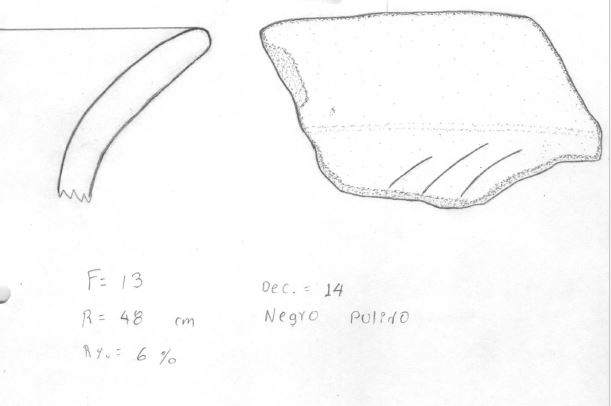 F= 13
R= 48 cm
R%= 6 %
Dec. = 14
Negro Pulido